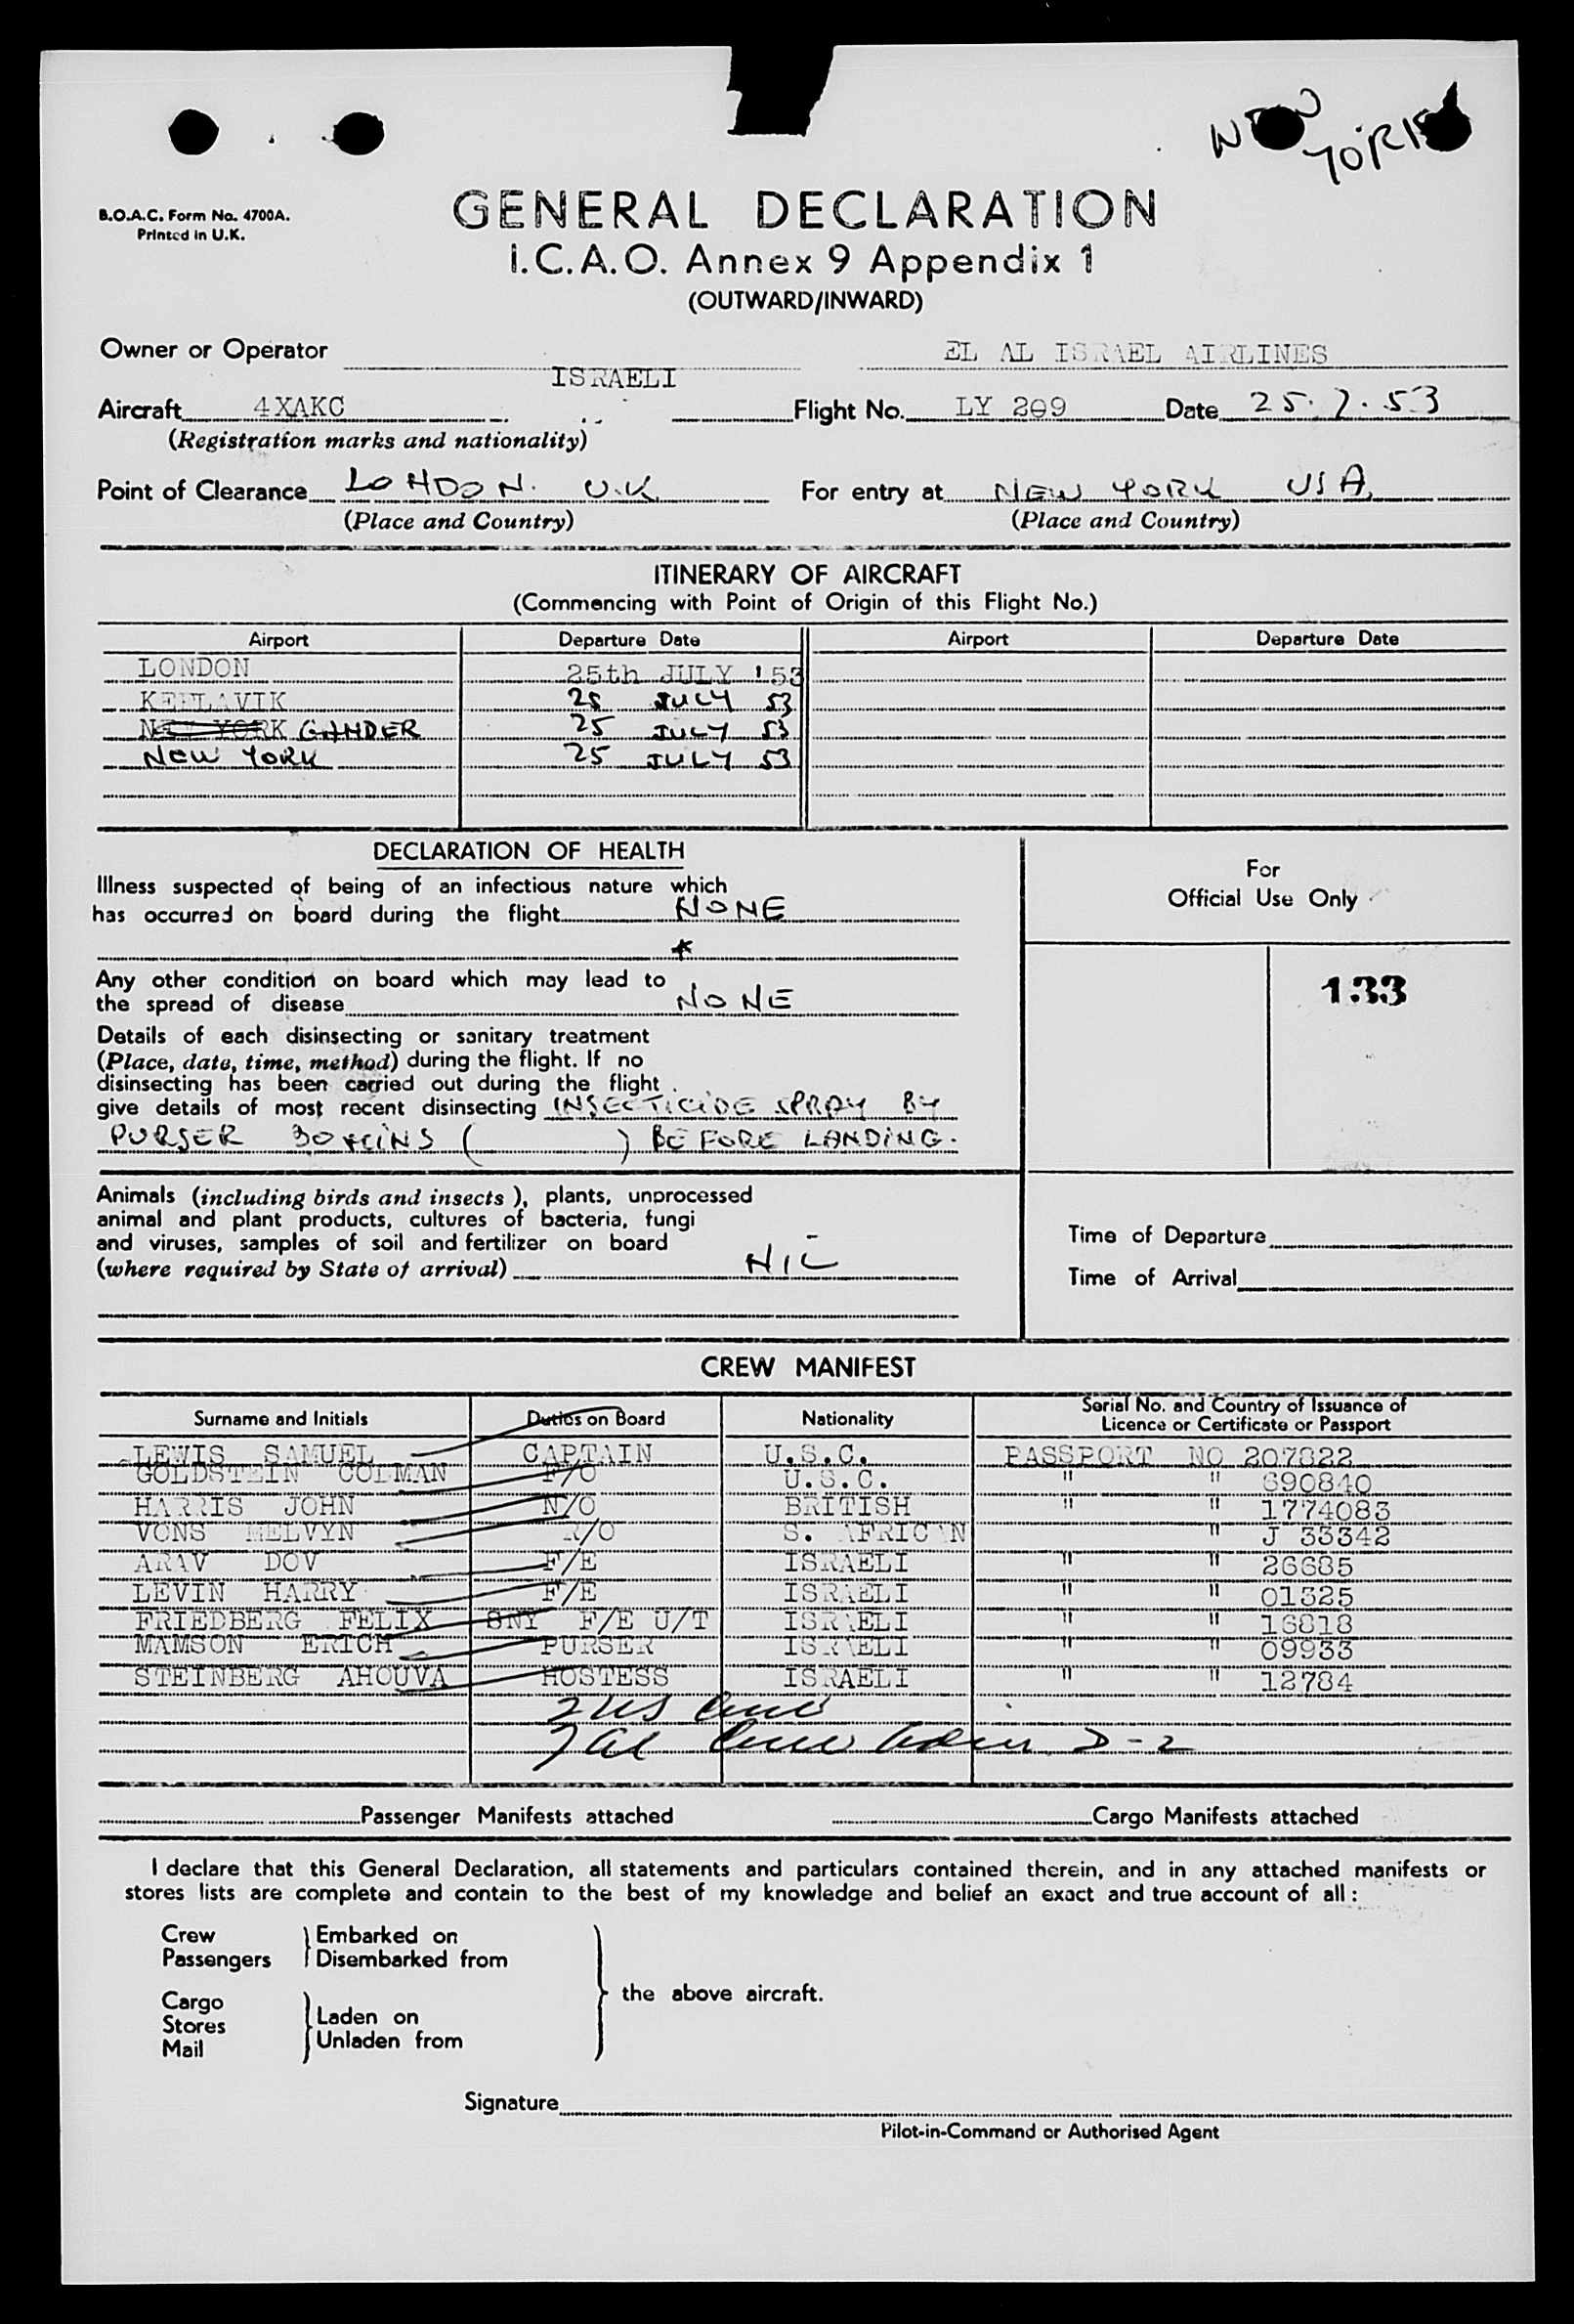 NEW YORK
B.O.A.C. Form No. 4700A.
Printed in U.K.
GENERAL DECLARATION
I.C.A.O. Annex 9 Appendix 1
(OUTWARD/INWARD)
Owner or Operator EL AL ISRAEL AIRLINES
ISRAELI
Aircraft 4XAKC Flight No. LY 209 Date 25.7.53
(Registration marks and nationality)
Point of Clearance LONDON. U.K. For entry at NEW YORK USA.
(Place and Country) (Place and Country)
ITINERARY OF AIRCRAFT
(Commencing with Point of Origin of this Flight No.)
Airport Departure Date Airport Departure Date
LONDON 25th JULY '53
KEFLAVIK 25 JULY 53
NEW YORK GANDER 25 JULY 53
NEW YORK 25 JULY 53
DECLARATION OF HEALTH
Illness suspected of being of an infectious nature which
has occurred on board during the flight NONE
*
Any other condition on board which may lead to
the spread of disease NONE
Details of each disinsecting or sanitary treatment
(Place, date, time, method) during the flight. If no
disinsecting has been carried out during the flight
give details of most recent disinsecting INSECTICIDE SPRAY BY
PURSER ( ) BEFORE LANDING.
For
Official Use Only
133
Animals (including birds and insects), plants, unprocessed
animal and plant products, cultures of bacteria, fungi
and viruses, samples of soil and fertilizer on board
(where required by State of arrival) NIL
Time of Departure
Time of Arrival
CREW MANIFEST
Surname and Initials Duties on Board Nationality Serial No. and Country of Issuance of
Licence or Certificate or Passport
LEWIS SAMUEL CAPTAIN U.S.C. PASSPORT NO 207822
GOLDSTEIN COLMAN F/O U.S.C. " " 690840
HARRIS JOHN N/O BRITISH " " 1774083
VONS MELVYN R/O S. AFRICAN " J 33342
ARAV DOV F/E ISRAELI " " 26685
LEVIN HARRY F/E ISRAELI " " 01325
FRIEDBERG FELIX SNY F/E U/T ISRAELI " " 16818
MAMSON ERICH PURSER ISRAELI " " 09933
STEINBERG AHOUVA HOSTESS ISRAELI " " 12784
2 US
7 al D-2
Passenger Manifests attached Cargo Manifests attached
I declare that this General Declaration, all statements and particulars contained therein, and in any attached manifests or
stores lists are complete and contain to the best of my knowledge and belief an exact and true account of all:
Crew
Passengers
Embarked on
Disembarked from
Cargo
Stores
Mail
Laden on
Unladen from
the above aircraft.
Signature
Pilot-in-Command or Authorised Agent